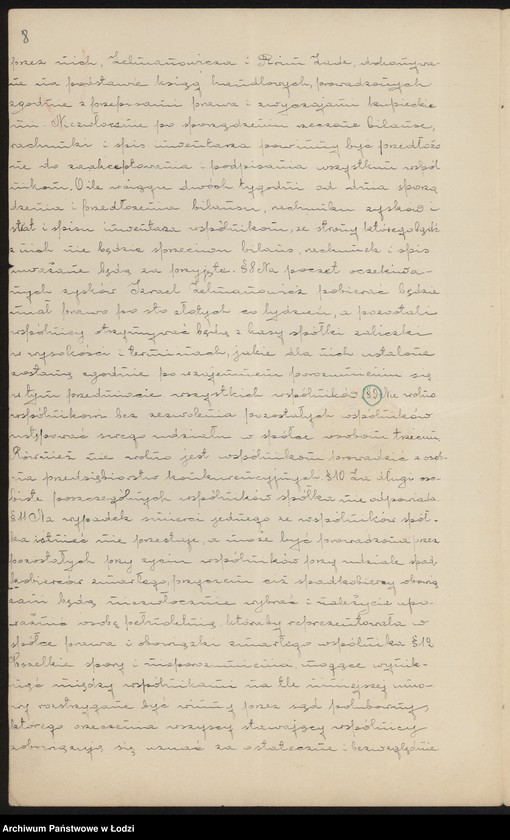 8
przez nich, Zelmanowicza i Rrim Lade, dokonywa-
ne na podstawie ksiąg handlowych, prowadzonych
zgodnie z przepisami prawa i zwyczajami kupieckie
mi. Niezwłocznie po sporządzeniu roczne bilanse,
rachunki i spis inwentarza powinny być przedłożo
ne do zaakceptowania i podpisania wszystkim wspól
nikom. O ile w ciągu dwóch tygodni od dnia sporzą
dzenia i przedłożenia bilansu, rachunku zysków i
strat i spisu inwentarza wspólnikom, ze strony któregobądź
z nich nie będzie sprzeciwu bilans, rachunek i spis
uważane będą za przyjęte. §8 Na poczet oczekiwa-
nych zysków Izrael Zelmanowicz pobierać będzie
miał prawo po sto złotych co tydzień, a pozostali
wspólnicy otrzymywać będą z kasy spółki zaliczki
w wysokości i terminach, jakie dla nich ustalone
zostaną zgodnie po wzajemnem porozumieniu się
w tym przedmiocie wszystkich wspólników §9 Nie wolno
wspólnikowi bez zezwolenia pozostałych wspólników
ustępować swego udziału w spółce osobom trzecim.
Również nie wolno jest wspólnikom prowadzić osob-
na przedsiębiorstw konkurencyjnych. §10 Za długi oso-
biste poszczególnych wspólników spółka nie odpowiada.
§11 Na wypadek śmierci jednego ze wspólników spół-
ka istnieć nie przestaje, a może być prowadzona przez
pozostałych przy życiu wspólników przy udziale spad
kobierców zmarłego, przyczem ciż spadkobiercy obowią
zani będą niezwłocznie wybrać i należycie upo-
ważnić osobę pełnoletnią, któraby reprezentowała w
spółce prawa i obowiązki zmarłego wspólnika §12
Wszelkie spory i nieporozumienia, mogące wynik-
nąć między wspólnikami na tle niniejszej umo-
wy rozstrzygane być winny przez sąd polubowny,
którego orzeczenia wszyscy stawający wspólnicy
zobowiązują się uznać za ostateczne i bezwzględnie
Archiwum Państwowe w Łodzi